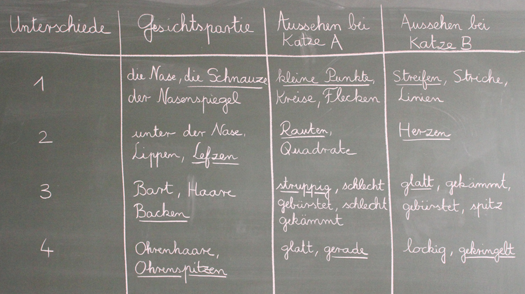 Unterschiede Gesichtspartie Aussehen bei Katze A Aussehen bei Katze B
1 die Nase, die Schnauze kleine Punkte, Streifen, Striche,
der Nasenspiegel Kreise, Flecken Linien
2 unter der Nase, Rauten, Herzen
Lippen, Lefzen Quadrate
3 Bart, Haare struppig, schlecht glatt, gekämmt,
Backen gebürstet, schlecht gebürstet, spitz
gekämmt
4 Ohrenhaare, glatt, gerade lockig, gekringelt
Ohrenspitzen